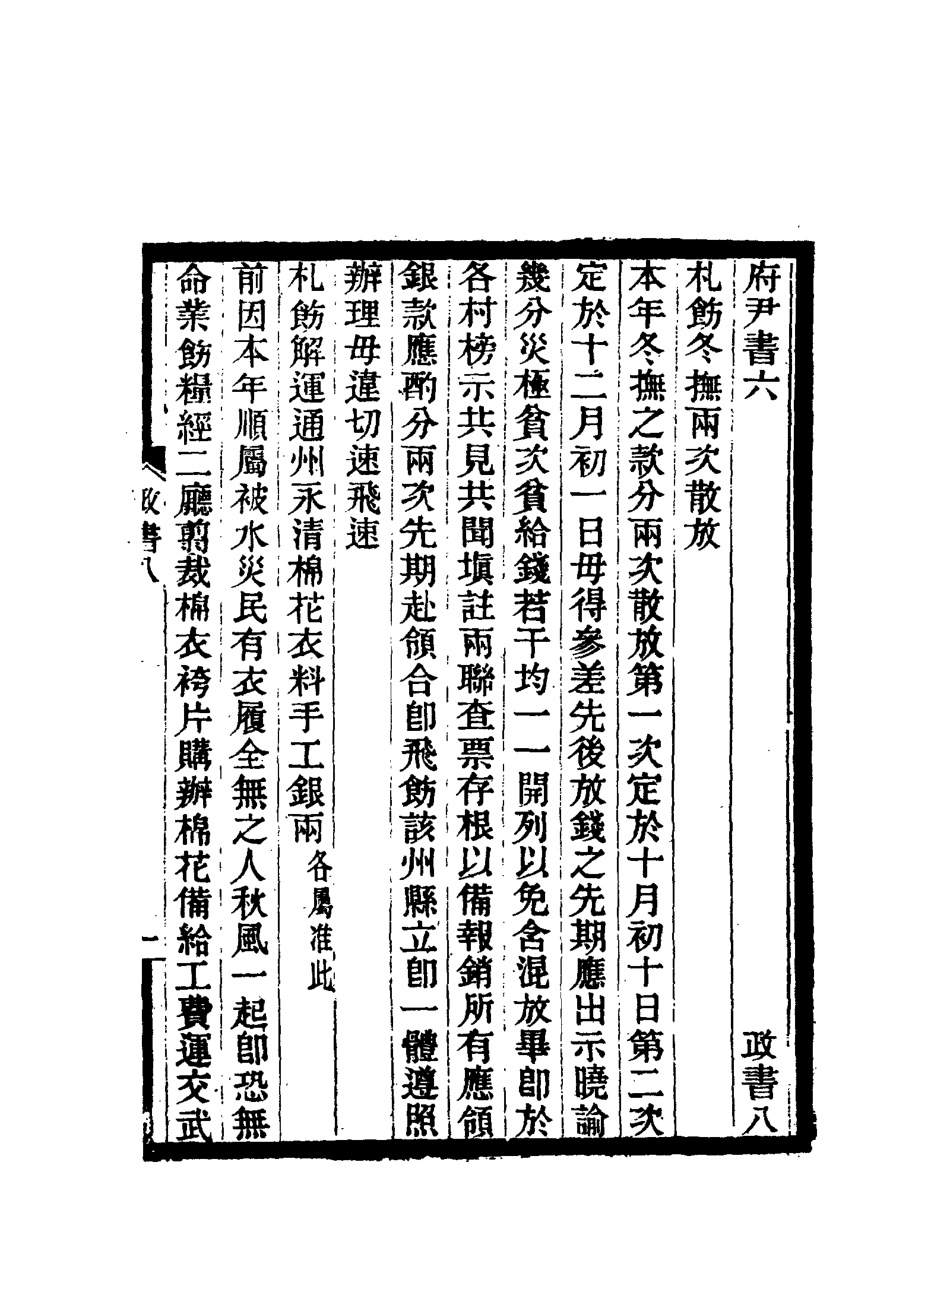 府尹書六　政書八
札飭冬撫兩次散放
本年冬撫之款分兩次散放第一次定於十月初十日第二次
定於十二月初一日毋得參差先後放錢之先期應出示曉諭
幾分災極貧次貧給錢若干均一一開列以免含混放畢卽於
各村榜示共見共聞塡註兩聯查票存根以備報銷所有應領
銀款應酌分兩次先期赴領合卽飛飭該州縣立卽一體遵照
辦理毋違切速飛速
札飭解運通州永清棉花衣料手工銀兩各屬准此
前因本年順屬被水災民有衣履全無之人秋風一起卽恐無
命業飭糧經二廳剪裁棉衣袴片購辦棉花備給工費運交武
政書八　一